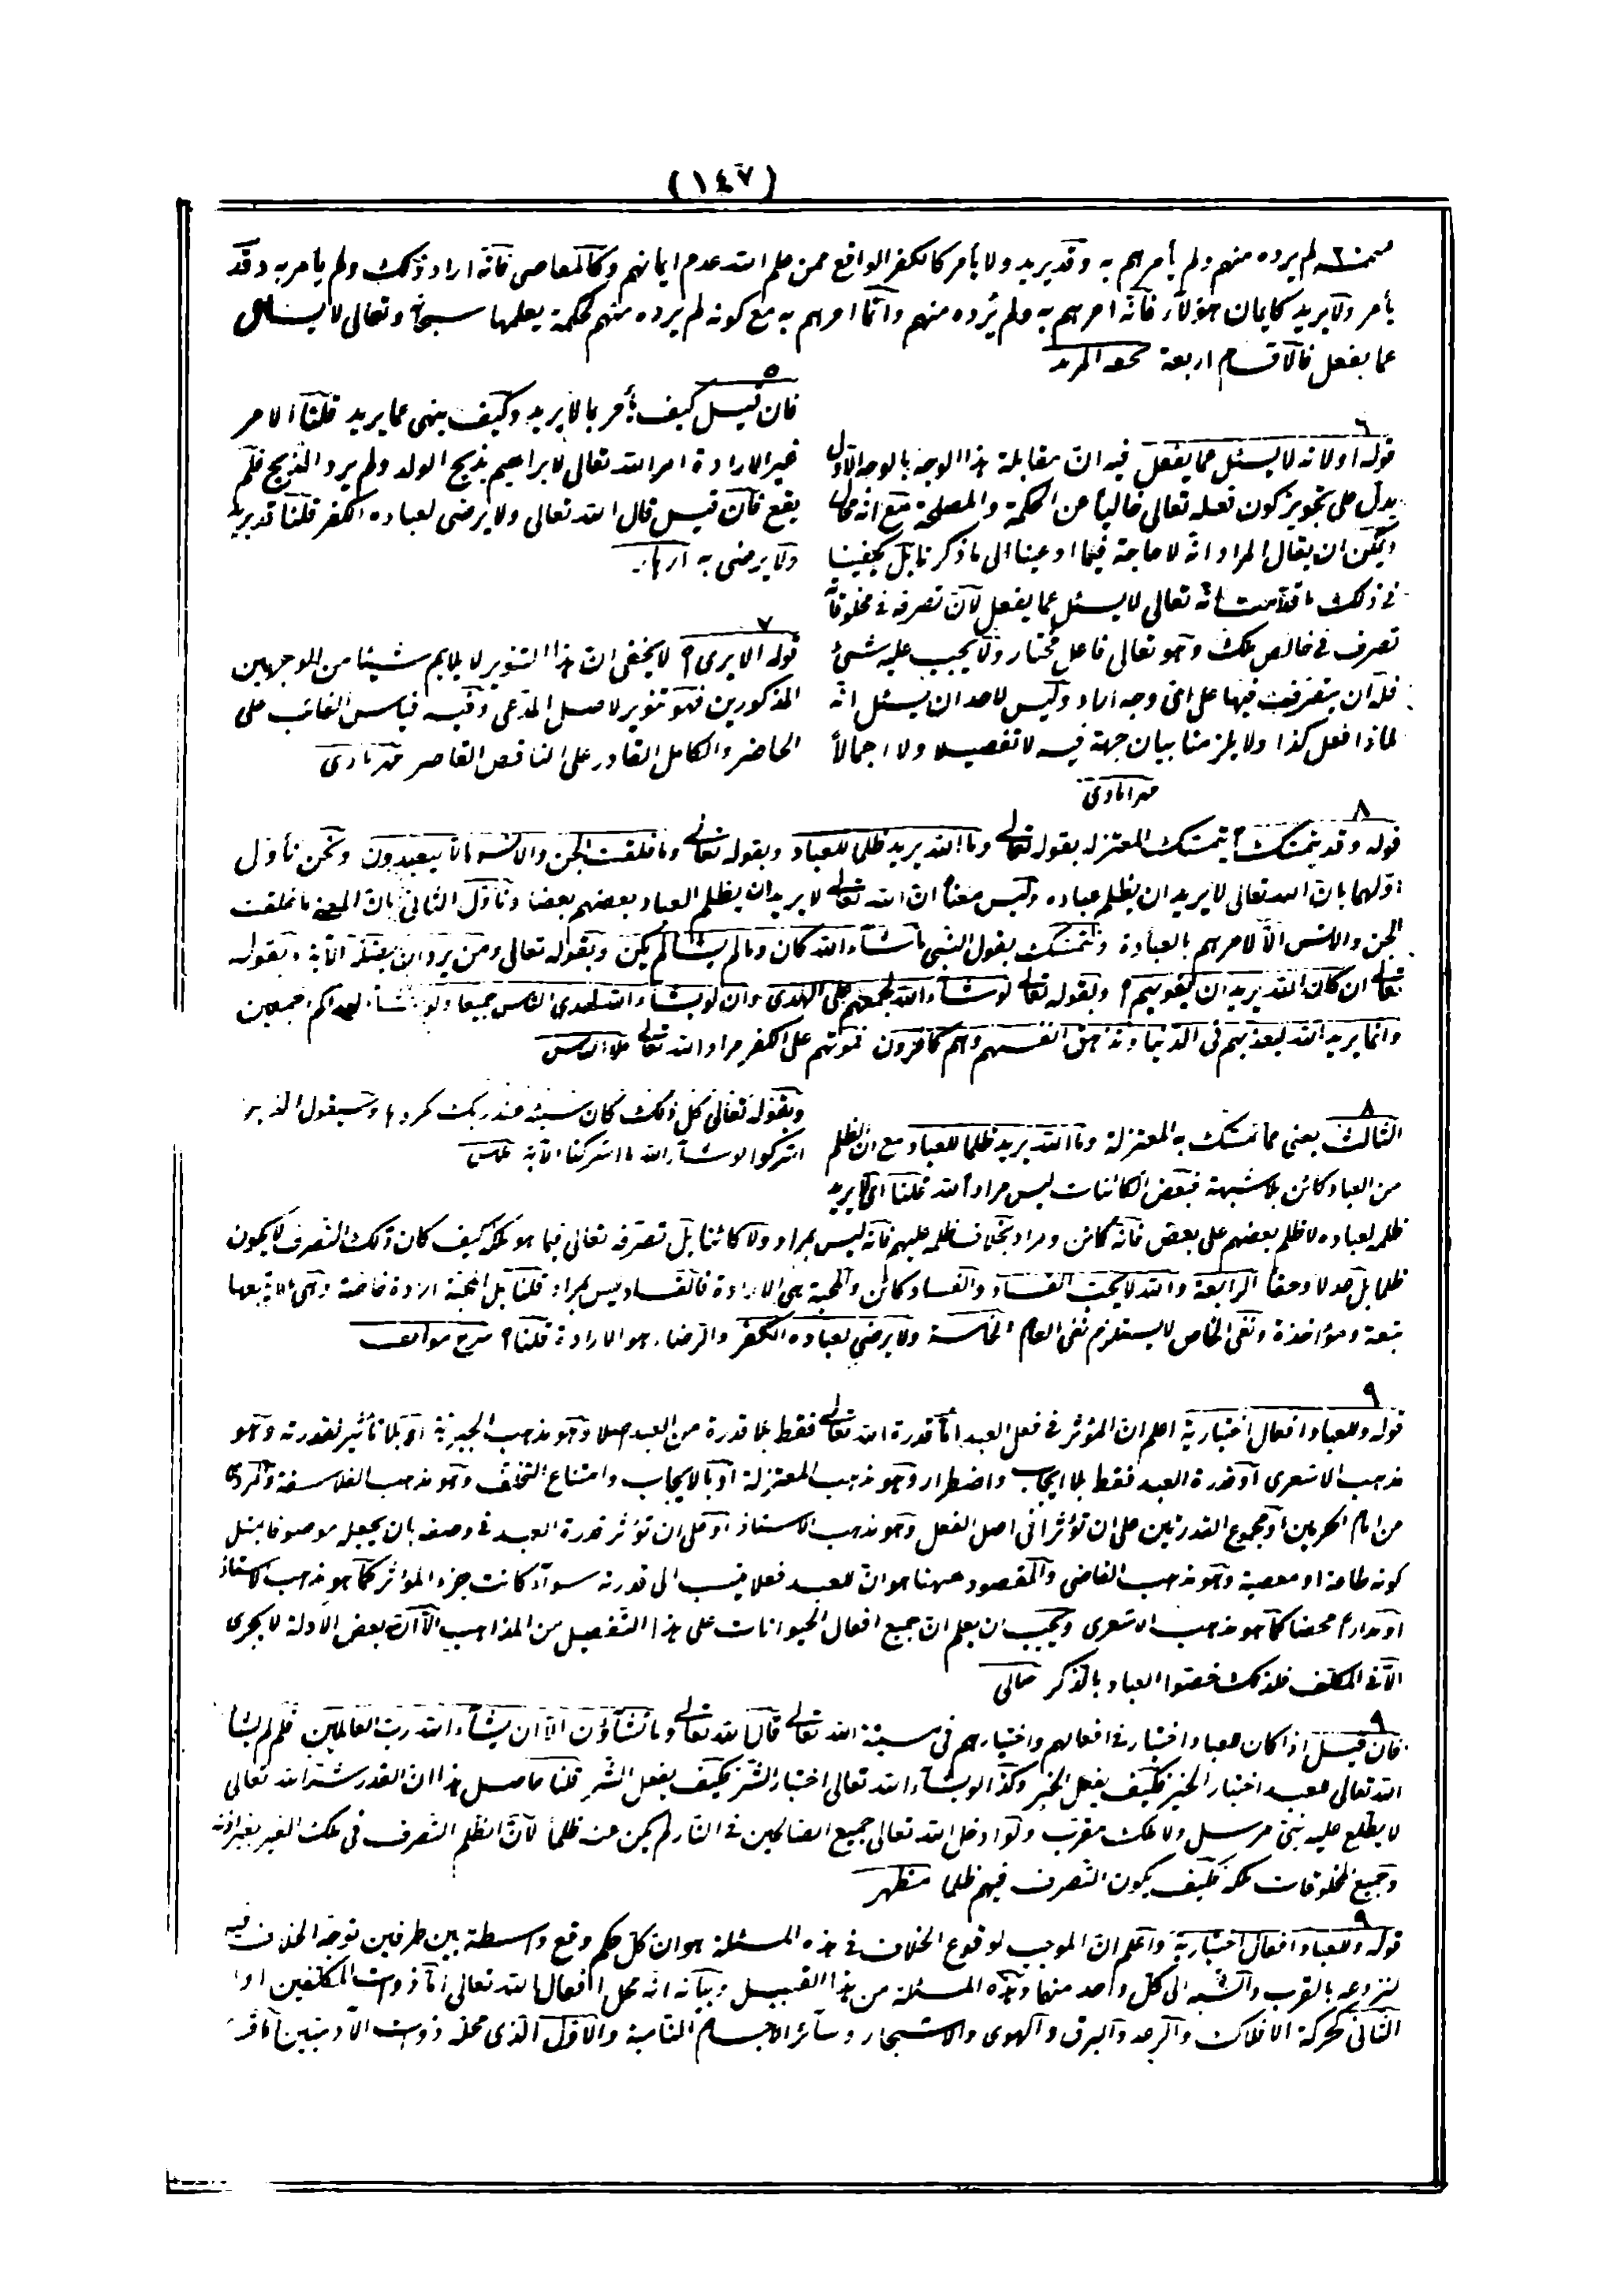 (١٤٧)
لم يرده منهم ولم يأمرهم به وقد يريد ولا يأمر كالكفر الواقع ممن علم الله عدم ايمانهم وكالمعاصى فانه اراد ذلك ولم يأمر به وقد
يأمر ولا يريد كايمان هؤلاء فانه امرهم به ولم يرده منهم وانما امرهم به مع كونه لم يرده منهم لحكمة يعلمها سبحانه وتعالى لا يسئل
عما يفعل فالاقسام اربعة تحفة المريد
٥
فان قيل كيف يأمر بما لا يريد وكيف ينهى عما يريد قلنا الامر
غير الارادة امر الله تعالى لابراهيم بذبح الولد ولم يرد الذبح فلم
يقع فان قيل قال الله تعالى ولا يرضى لعباده الكفر قلنا قد يريد
ولا يرضى به
٦
قوله او لانه لا يسئل عما يفعل فيه ان مقابلة هذا الوجه بالوجه الاول
يدل على تجويز كون فعله تعالى خاليا عن الحكمة والمصلحة مع انه محال
ويمكن ان يقال المراد انه لا حاجة فيما ادعينا الى ما ذكرنا بل يكفينا
فى ذلك ما انه تعالى لا يسئل عما يفعل لان تصرفه فى مخلوقاته
تصرف فى خالص ملكه وهو تعالى فاعل مختار ولا يجب عليه شئ
فله ان يتصرف فيها على اى وجه اراد وليس لاحد ان يسئل انه
لماذا فعل كذا ولا يلزمنا بيان جهة فيه لا تفصيلا ولا اجمالا
٧
قوله الا يرى الخ لا يخفى ان هذا التنوير لا يلايم شيئا من الوجهين
المذكورين فهو تنوير لاصل المدعى وفيه قياس الغائب على
الحاضر والكامل القادر على الناقص القاصر
٨
قوله وقد يتمسك الخ يتمسك المعتزله بقوله تعالى وما الله يريد ظلما للعباد وبقوله تعالى وما خلقت الجن والانس الا ليعبدون ونحن نأول
اولهما بان الله تعالى لا يريد ان يظلم عباده وليس معناه ان الله تعالى لا يريد ان يظلم العباد بعضهم بعضا ونأول الثانى بان المعنى ما خلقت
الجن والانس الا لامرهم بالعبادة ونتمسك بقول النبى ما شاء الله كان وما لم يشأ لم يكن وبقوله تعالى ومن يرد ان يضله الآية وبقوله
تعالى ان كان الله يريد ان يغويهم الخ وبقوله تعالى لو شاء الله لجمعهم على الهدى وان لو يشاء الله لهدى الناس جميعا ولو شاء لهداكم اجمعين
وانما يريد الله ليعذبهم فى الدنيا وتزهق انفسهم وهم كافرون فموتهم على الكفر مراد الله تعالى
وبقوله تعالى كل ذلك كان سيئه عند ربك مكروها وسيقول الذين
اشركوا لو شاء الله ما اشركنا الآية
٨
الثالث يعنى مما تمسك به المعتزلة وما الله يريد ظلما للعباد مع ان الظلم
من العباد كائن بلا شبهة فبعض الكائنات ليس مرادا لله قلنا اى لا يريد
ظلمه لعباده لا ظلم بعضهم على بعض فانه كائن ومراد بخلاف ظلمه عليهم فانه ليس بمراد ولا كائنا بل تصرفه تعالى فيما هو ملكه كيف كان ذلك التصرف لا يكون
ظلما بل عدلا وحقا الرابعة والله لا يحب الفساد والفساد كائن والمحبة هى الارادة فالفساد ليس بمراد قلنا بل المحبة ارادة خاصة وهى ما لا يتبعها
تبعة ومؤاخذة ونفى الخاص لا يستلزم نفى العام الخامسة ولا يرضى لعباده الكفر والرضاء هو الارادة قلنا الخ شرح مواقف
٩
قوله وللعباد افعال اختيارية اعلم ان المؤثر فى فعل العبد اما قدرة الله تعالى فقط بلا قدرة من العبد اصلا وهو مذهب الجبرية او بلا تأثير لقدرته وهو
مذهب الاشعرى او قدرة العبد فقط بلا ايجاب واضطرار وهو مذهب المعتزلة او بالايجاب وامتناع التخلف وهو مذهب الفلاسفة والمروى
من امام الحرمين او مجموع القدرتين على ان تؤثرا فى اصل الفعل وهو مذهب الاستاذ او على ان تؤثر قدرة العبد فى وصفه بان يجعله موصوفا بمثل
كونه طاعة او معصية وهو مذهب القاضى والمقصود ههنا هو ان للعبد فعلا ينسب الى قدرته سواء كانت جزء المؤثر كما هو مذهب الاستاذ
او مدارا محضا كما هو مذهب الاشعرى ويجب ان يعلم ان جميع افعال الحيوانات على هذا التفصيل من المذاهب الا ان بعض الادلة لا يجرى
الا فى المكلف فلذلك خصوا العباد بالذكر خيالى
٩
فان قيل اذا كان للعباد اختيار فى افعالهم واختيارهم فى مشيئة الله تعالى قال الله تعالى وما تشاؤن الا ان يشاء الله رب العالمين فلم لم يشأ
الله تعالى للعبد اختيار الخير فكيف يفعل الخير وكذا لو يشاء الله تعالى اختيار الشر فكيف يفعل الشر قلنا حاصل هذا ان القدر سر الله تعالى
لا يطلع عليه نبى مرسل ولا ملك مقرب ولو ادخل الله تعالى جميع الصالحين فى النار لم يكن عنه ظلما لان الظلم التصرف فى ملك الغير بغير اذنه
وجميع المخلوقات ملكه فكيف يكون التصرف فيهم ظلما مظهر
٩
قوله وللعباد افعال اختيارية واعلم ان الموجب لوقوع الخلاف فى هذه المسئلة هو ان كل حكم وقع واسطة بين طرفين توجه الخلاف فيه
لنزوعه بالقرب والشبه الى كل واحد منهما وهذه المسئلة من هذا القبيل وبيانه انه محل افعال الله تعالى اما ذوات المكلفين او لا
الثانى كحركة الافلاك والرعد والبرق والهوى والاشجار وسائر الاجسام النامية والاول الذى محله ذوات الآدميين